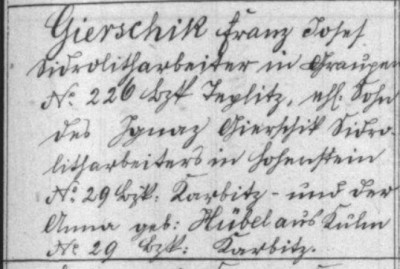 Gierschik Franz Josef
Sidrolitharbeiter in Graupen
No. 226 Bzk Teplitz, ehl. Sohn
des Ignaz Gierschik Sidro-
litharbeiters in Hohenstein
No. 29 Bzk: Karbitz - und der
Anna geb: Hübel aus Kulm
No 29 Bzk: Karbitz.